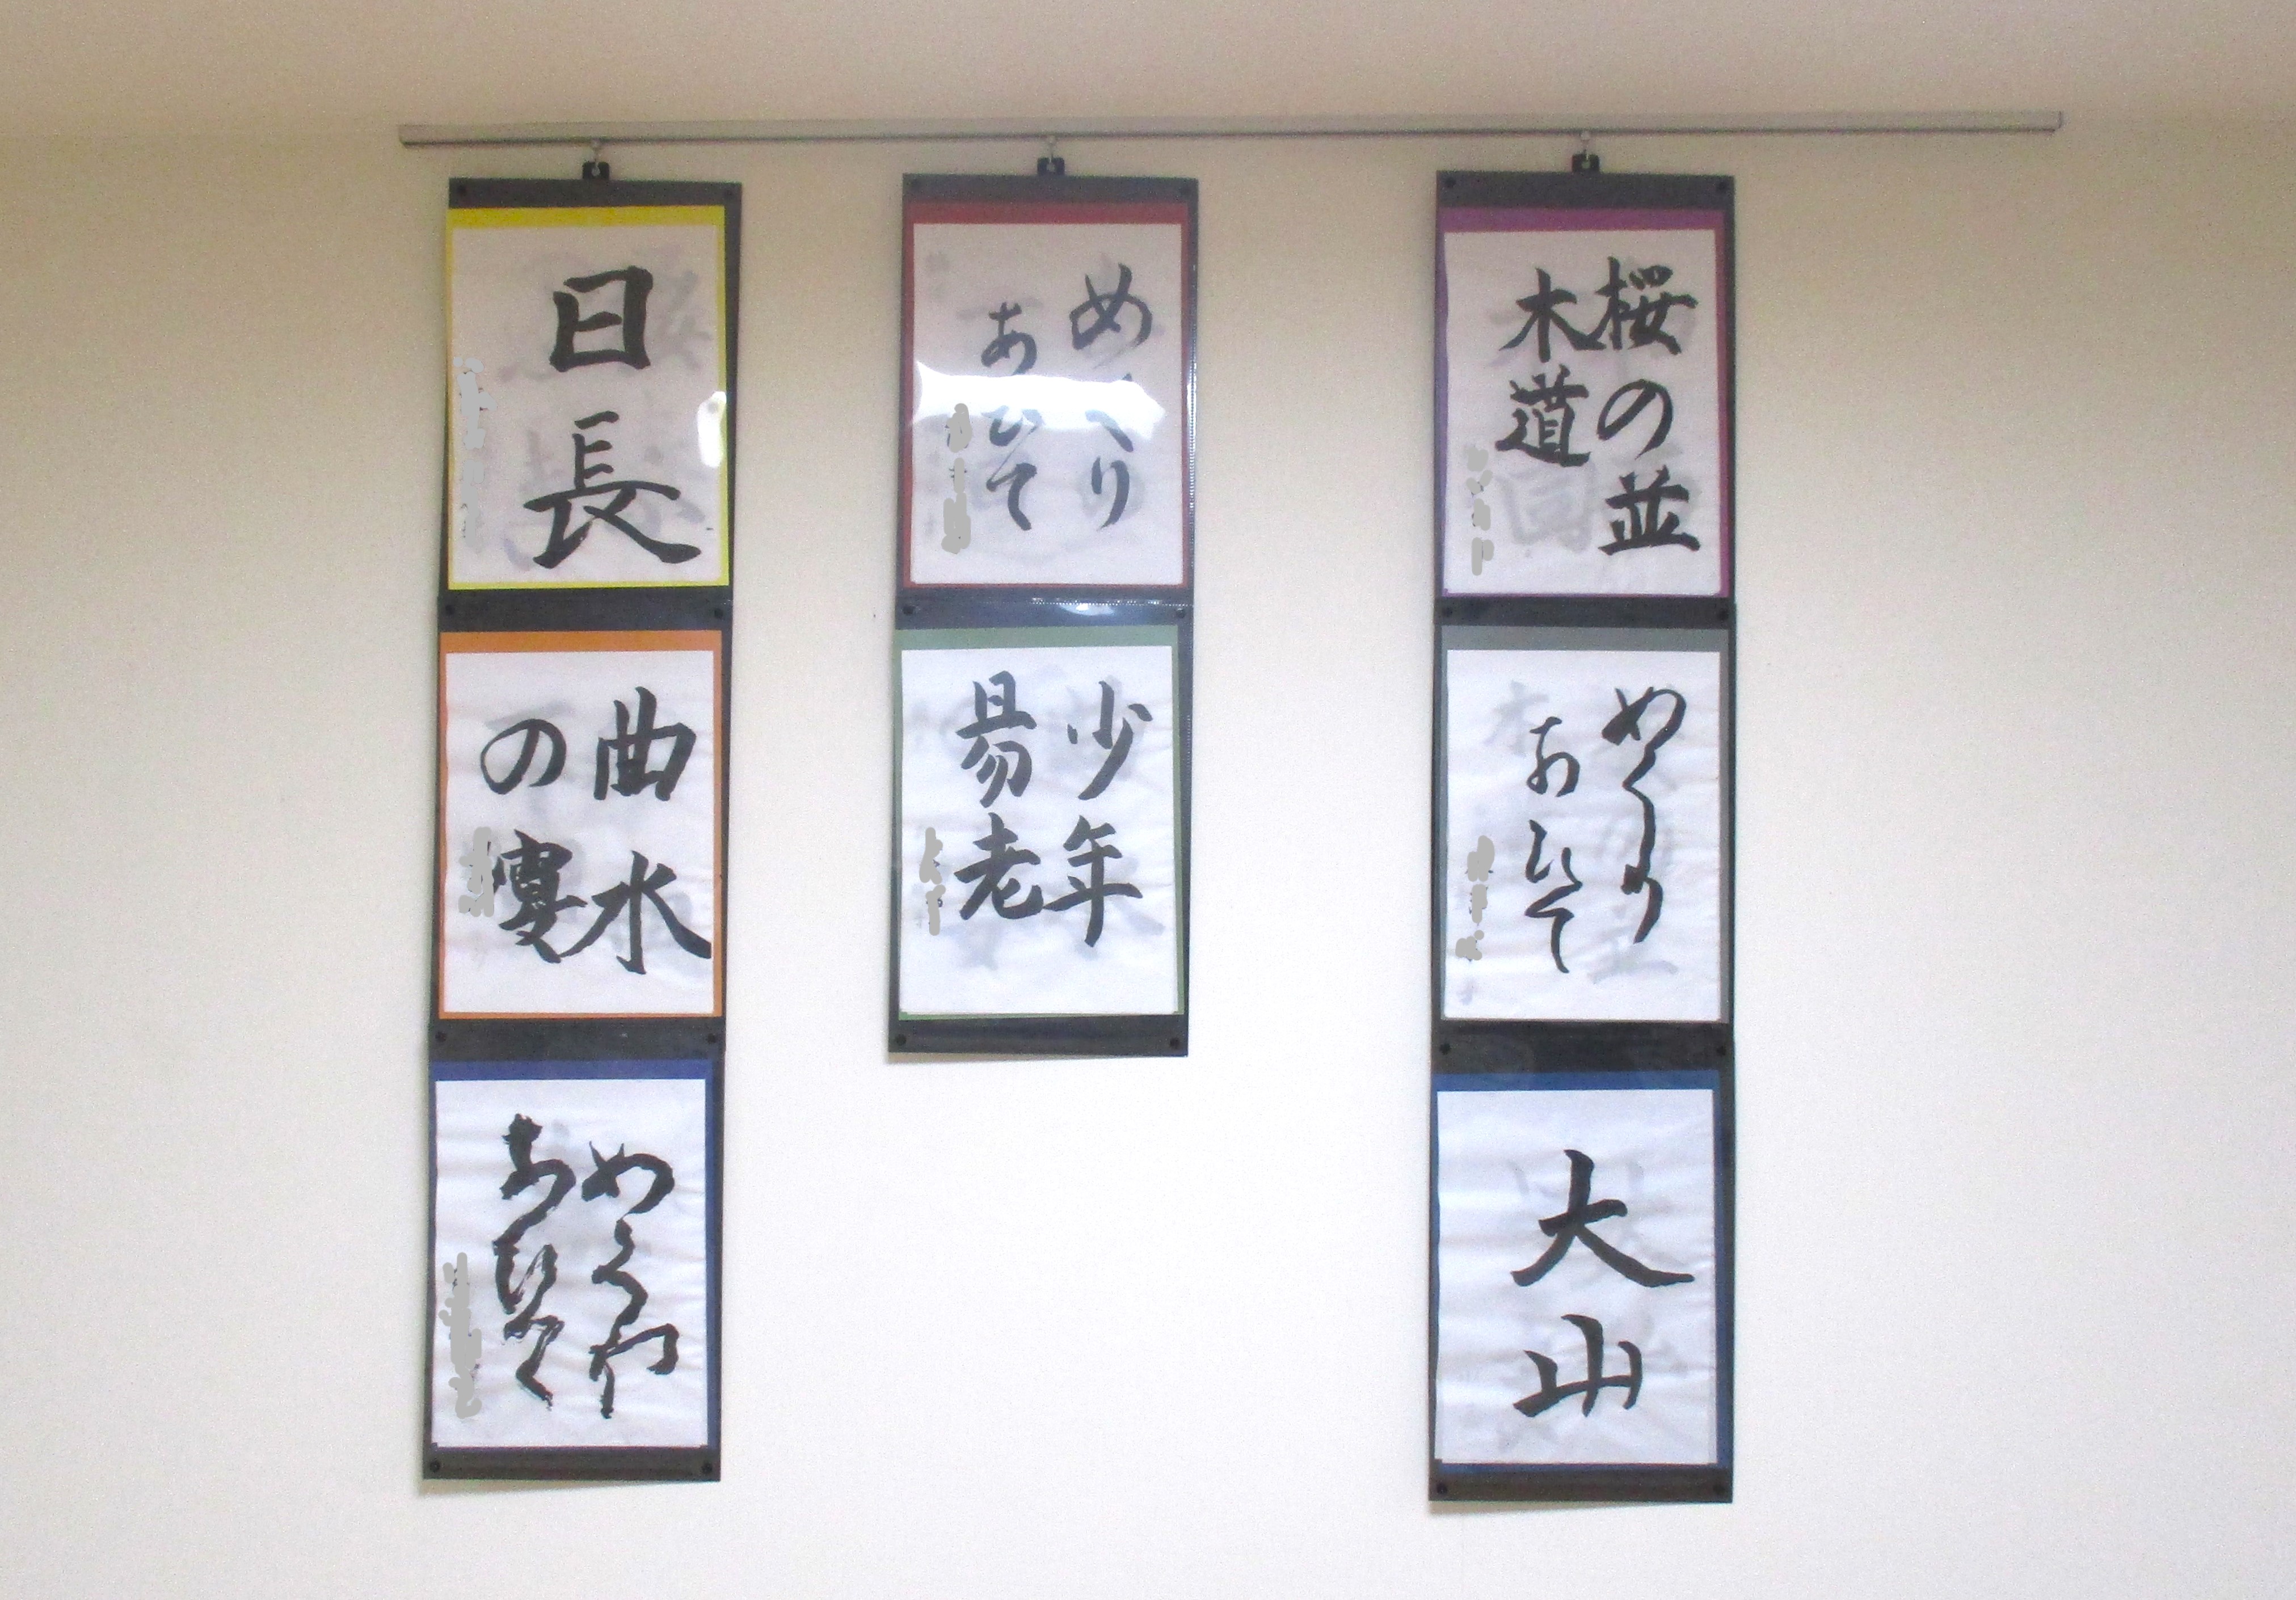 日長
曲水
の
めくり
あひて
めくり
あひて
少年
易老
桜の並
木道
めくり
あひて
大山